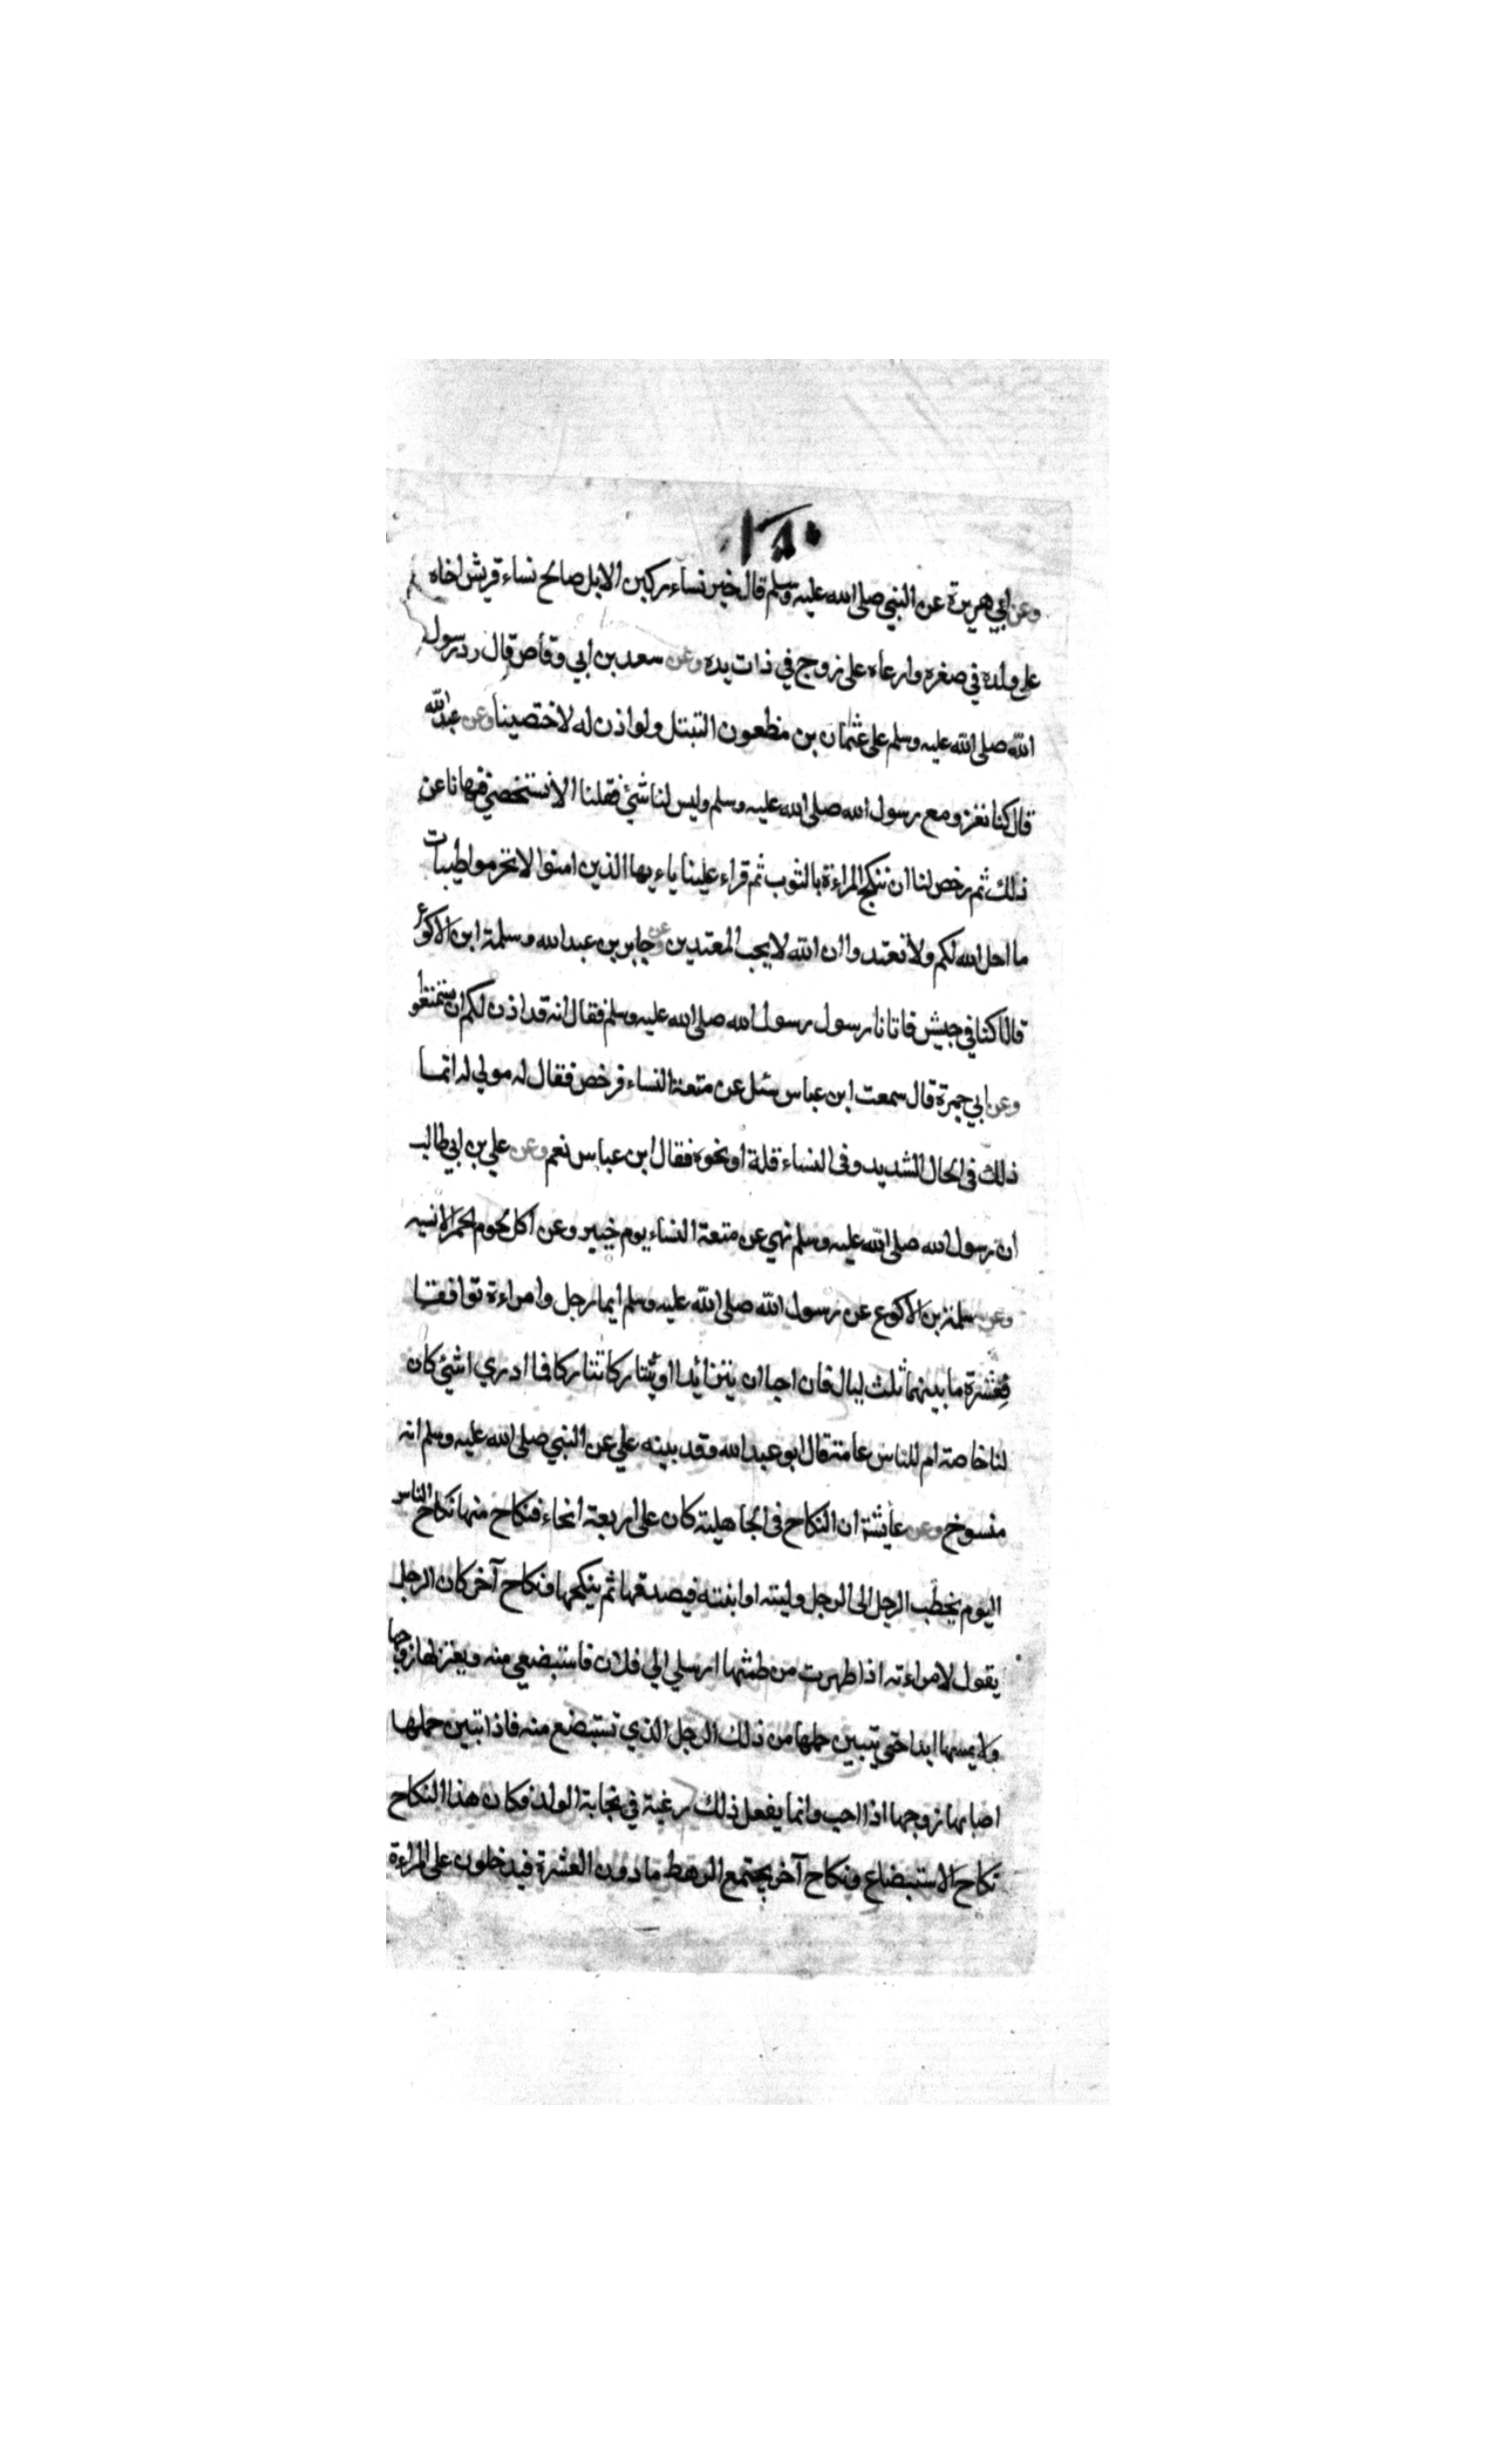 وعن ابي هريرة عن النبي صلى الله عليه وسلم قال خير نساء ركبن الابل صالح نساء قريش احناه
على ولده في صغره وارعاه على زوج في ذات يده وعن سعد بن ابي وقاص قال رد رسول
الله صلى الله عليه وسلم على عثمان بن مظعون التبتل ولو اذن له لاختصينا وعن عبد الله
قال كنا نغزو مع رسول الله صلى الله عليه وسلم وليس لنا شئ فقلنا الا نستخصي فنهانا عن
ذلك ثم رخص لنا ان ننكح المراءة بالثوب ثم قراء علينا ياءيها الذين امنوا لا تحرموا طيبات
ما احل الله لكم ولا تعتدوا ان الله لا يحب المعتدين وعن جابر بن عبد الله وسلمة ابن الاكوع
قالا كنا في جيش فاتانا رسول رسول الله صلى الله عليه وسلم فقال انه قد اذن لكم ان تستمتعوا
وعن ابي جمرة قال سمعت ابن عباس سئل عن متعة النساء فرخص فقال له مولي له انما
ذلك فى الحال الشديد وفى النساء قلة او نحوه فقال ابن عباس نعم وعن علي بن ابي طالب
ان رسول الله صلى الله عليه وسلم نهي عن متعة النساء يوم خيبر وعن اكل لحوم الحمر الانسيه
وعن سلمة بن الاكوع عن رسول الله صلى الله عليه وسلم ايما رجل وامراءة توافقا
فعشرة ما بينهما ثلث ليال فان احبا ان يتزائدا او يتتاركا تتاركا فما ادري اشئ كان
لنا خاصة ام للناس عامة قال ابو عبد الله وقد بينه علي عن النبي صلى الله عليه وسلم انه
منسوخ وعن عايشة ان النكاح فى الجاهلية كان على اربعة انحاء فنكاح منها نكاح الناس
اليوم يخطب الرجل الى الرجل وليته او ابنته فيصدقها ثم ينكحها ونكاح آخر كان الرجل
يقول لامراءته اذا طهرت من طمثها ارسلي الي فلان فاستبضعي منه ويعتزلها زوجها
ولا يمسها ابدا حتى يتبين حملها من ذلك الرجل الذي تستبضع منه فاذا تبين حملها
اصابها زوجها اذا احب وانما يفعل ذلك رغبة في نجابة الولد فكان هذا النكاح
نكاح الاستبضاع ونكاح آخر يجتمع الرهط ما دون العشرة فيدخلون على المراءة